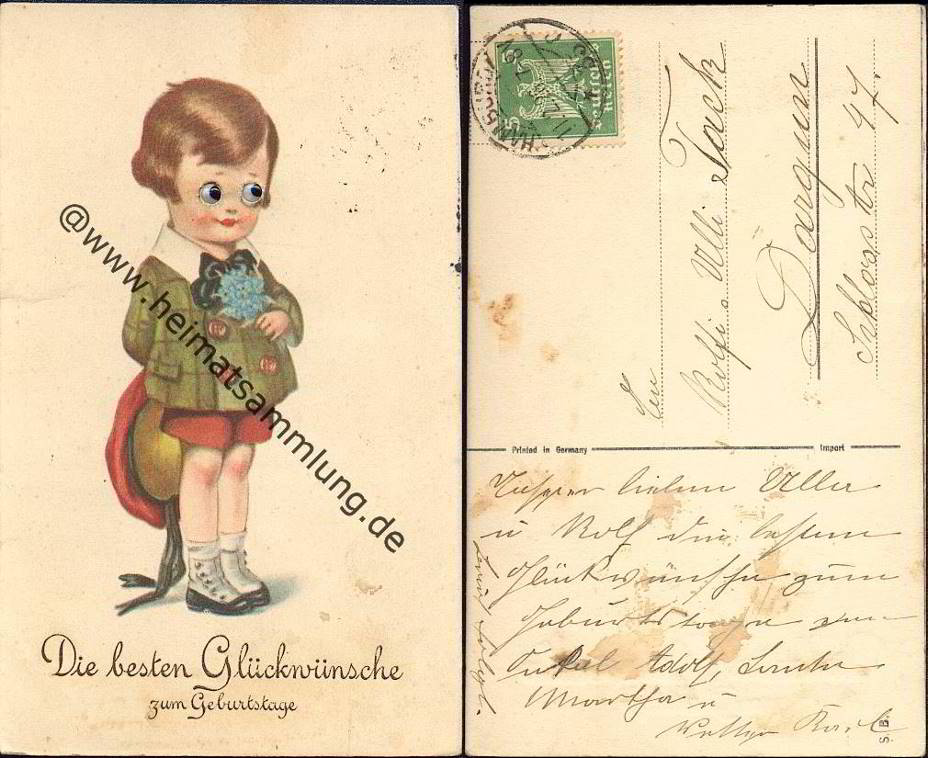 @www.heimatsammlung.de
Die besten Glückwünsche
zum Geburtstage
HAMBURG
5
An
Rolfi u. Ulli Tack
Dargun
Schlosstr 47.
Printed in Germany
Import
Unseren lieben Ulli
u Rolf die besten
Glückwünsche zum
Geburtstage von
Onkel Adolf, Tante
Martha u
Karl
Brief folgt.
S.B.